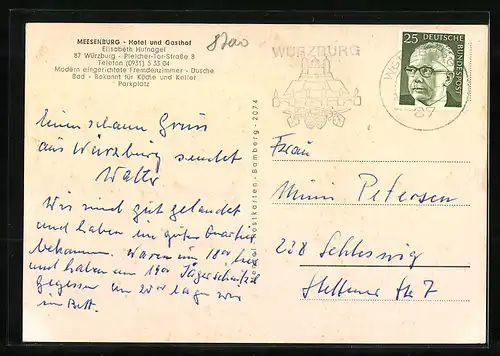 MEESENBURG - Hotel und Gasthof
Elisabeth Hufnagel
87 Würzburg - Pleicher-Tor-Straße 8
Telefon (0931) 5 33 04
Modern eingerichtete Fremdenzimmer - Dusche
Bad - Bekannt für Küche und Keller
Parkplatz
8700
WÜRZBURG
87
25
DEUTSCHE BUNDESPOST
Einen schönen Gruss
aus Würzburg sendet
Walter
Wir sind gut gelandet
und haben ein gutes Quartier
bekommen. Waren um 18 00 hier
und haben um 19 00 Jägerschnitzel
gegessen um 20 00 lagen wir
im Bett.
Postkarten - Bamberg - 2074
Frau
Mimi Petersen
238 Schleswig
Stettiner Str 7